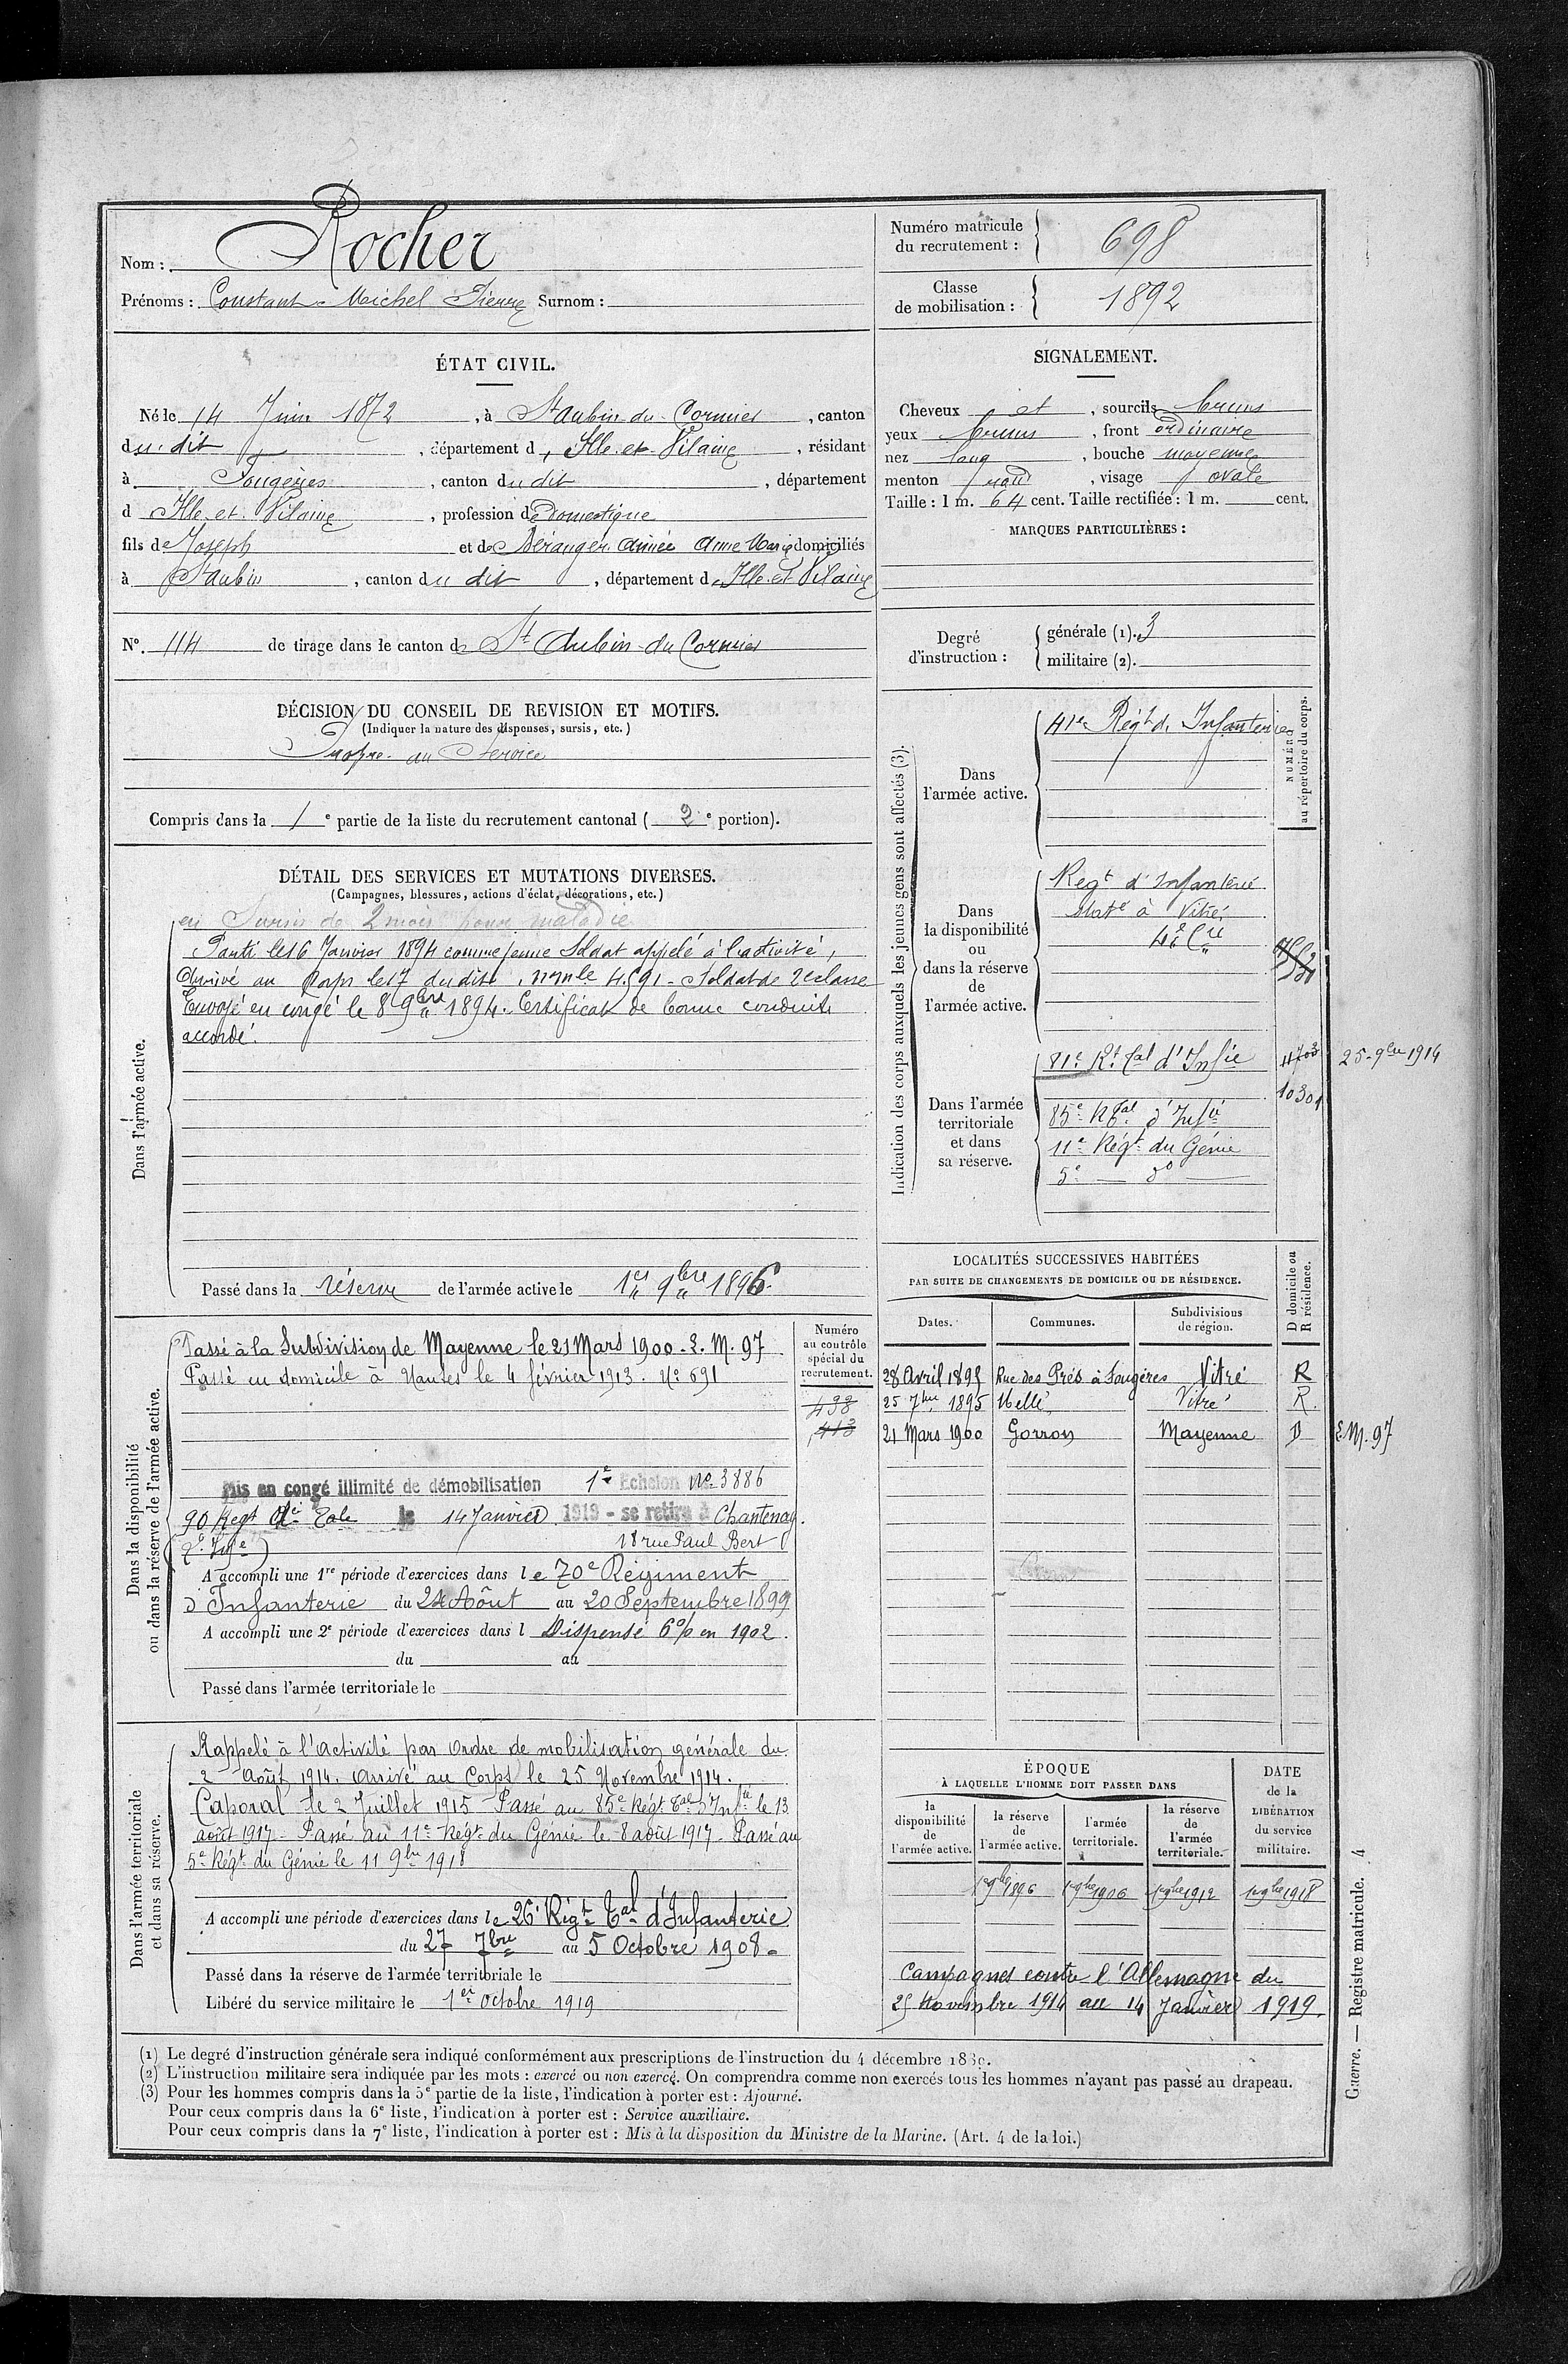 Nom : Rocher
Prénoms : Constant Michel Pierre Surnom :
Numéro matricule du recrutement : 698
Classe de mobilisation : 1892
ÉTAT CIVIL.
Né le 14 Juin 1872, à St Aubin du Cormier, canton
du dit, département d'Ille et Vilaine, résidant
à Fougères, canton du dit, département
d Ille et Vilaine, profession de domestique
fils de Joseph et de Béranger Aimée Anne Marie domiciliés
à St Aubin, canton du dit, département d'Ille et Vilaine
N°. 114 de tirage dans le canton de St Aubin du Cormier
SIGNALEMENT.
Cheveux et, sourcils bruns
yeux bruns, front ordinaire
nez long, bouche moyenne
menton rond, visage ovale
Taille : 1 m. 64 cent. Taille rectifiée : 1 m. cent.
MARQUES PARTICULIÈRES :
Degré d'instruction : générale (1). 3
militaire (2).
DÉCISION DU CONSEIL DE REVISION ET MOTIFS.
(Indiquer la nature des dispenses, sursis, etc.)
Propre au Service
Compris dans la 1e partie de la liste du recrutement cantonal (2e portion).
DÉTAIL DES SERVICES ET MUTATIONS DIVERSES.
(Campagnes, blessures, actions d'éclat, décorations, etc.)
Dans l'armée active.
en Sursis de 2 mois pour maladie
Parti le 16 Janvier 1894 comme jeune Soldat appelé à l'activité,
Arrivé au Corps le 17 du dit, n° mle 4591 - Soldat de 2e classe
Envoyé en congé le 8 9bre 1894. Certificat de bonne conduite
accordé.
Passé dans la réserve de l'armée active le 1er 9bre 1896.
Indication des corps auxquels les jeunes gens sont affectés (3).
NUMÉRO au répertoire du corps.
Dans l'armée active.
41e Régt d'Infanterie
Dans la disponibilité ou dans la réserve de l'armée active.
Régt d'Infanterie
Staté à Vitré
Dans l'armée territoriale et dans sa réserve.
81e Rt Tal d'Infie 4703 25-9bre 1914
10301
85e RTal d'Infie
11e Régt du Génie
5e do
Dans la disponibilité ou dans la réserve de l'armée active.
Numéro au contrôle spécial du recrutement.
Passé à la Subdivision de Mayenne le 21 Mars 1900 - E. M. 97
Passé en domicile à Nantes le 4 février 1913. N° 691
438
413
Mis en congé illimité de démobilisation 1e Echelon No 3886
90 Regt Tale le 14 Janvier 1919 - se retire à Chantenay.
18 rue Paul Bert
A accompli une 1re période d'exercices dans le 70e Régiment
d'Infanterie du 24 Août au 20 Septembre 1899
A accompli une 2e période d'exercices dans l Dispensé 6% en 1902.
du au
Passé dans l'armée territoriale le
LOCALITÉS SUCCESSIVES HABITÉES
PAR SUITE DE CHANGEMENTS DE DOMICILE OU DE RÉSIDENCE.
Dates. Communes. Subdivisions de région. D domicile ou R résidence.
28 Avril 1895 Rue des Prés à Fougères Vitré R
25 7bre 1895 Mellé Vitré R.
21 Mars 1900 Gorron Mayenne D E.M. 97
Dans l'armée territoriale et dans sa réserve.
Rappelé à l'Activité par Ordre de mobilisation générale du
2 Août 1914. Arrivé au Corps le 25 Novembre 1914.
Caporal le 2 Juillet 1915 - Passé au 85e Régt Tal d'Infie le 13
août 1917 - Passé au 11e Régt du Génie le 8 août 1917 - Passé au
5e Régt du Génie le 11 9bre 1918
A accompli une période d'exercices dans le 26e Régt Tal d'Infanterie
du 27 7bre au 5 Octobre 1908
Passé dans la réserve de l'armée territoriale le
Libéré du service militaire le 1er Octobre 1919
ÉPOQUE
À LAQUELLE L'HOMME DOIT PASSER DANS
la disponibilité de l'armée active. la réserve de l'armée active. l'armée territoriale. la réserve de l'armée territoriale. DATE de la LIBÉRATION du service militaire.
1er 9bre 1896 1er 9bre 1906 1er 9bre 1912 1er 9bre 1918
Campagnes contre l'Allemagne du
25 Novembre 1914 au 14 Janvier 1919.
(1) Le degré d'instruction générale sera indiqué conformément aux prescriptions de l'instruction du 4 décembre 1889.
(2) L'instruction militaire sera indiquée par les mots : exercé ou non exercé. On comprendra comme non exercés tous les hommes n'ayant pas passé au drapeau.
(3) Pour les hommes compris dans la 5e partie de la liste, l'indication à porter est : Ajourné.
Pour ceux compris dans la 6e liste, l'indication à porter est : Service auxiliaire.
Pour ceux compris dans la 7e liste, l'indication à porter est : Mis à la disposition du Ministre de la Marine. (Art. 4 de la loi.)
Guerre. — Registre matricule. 4